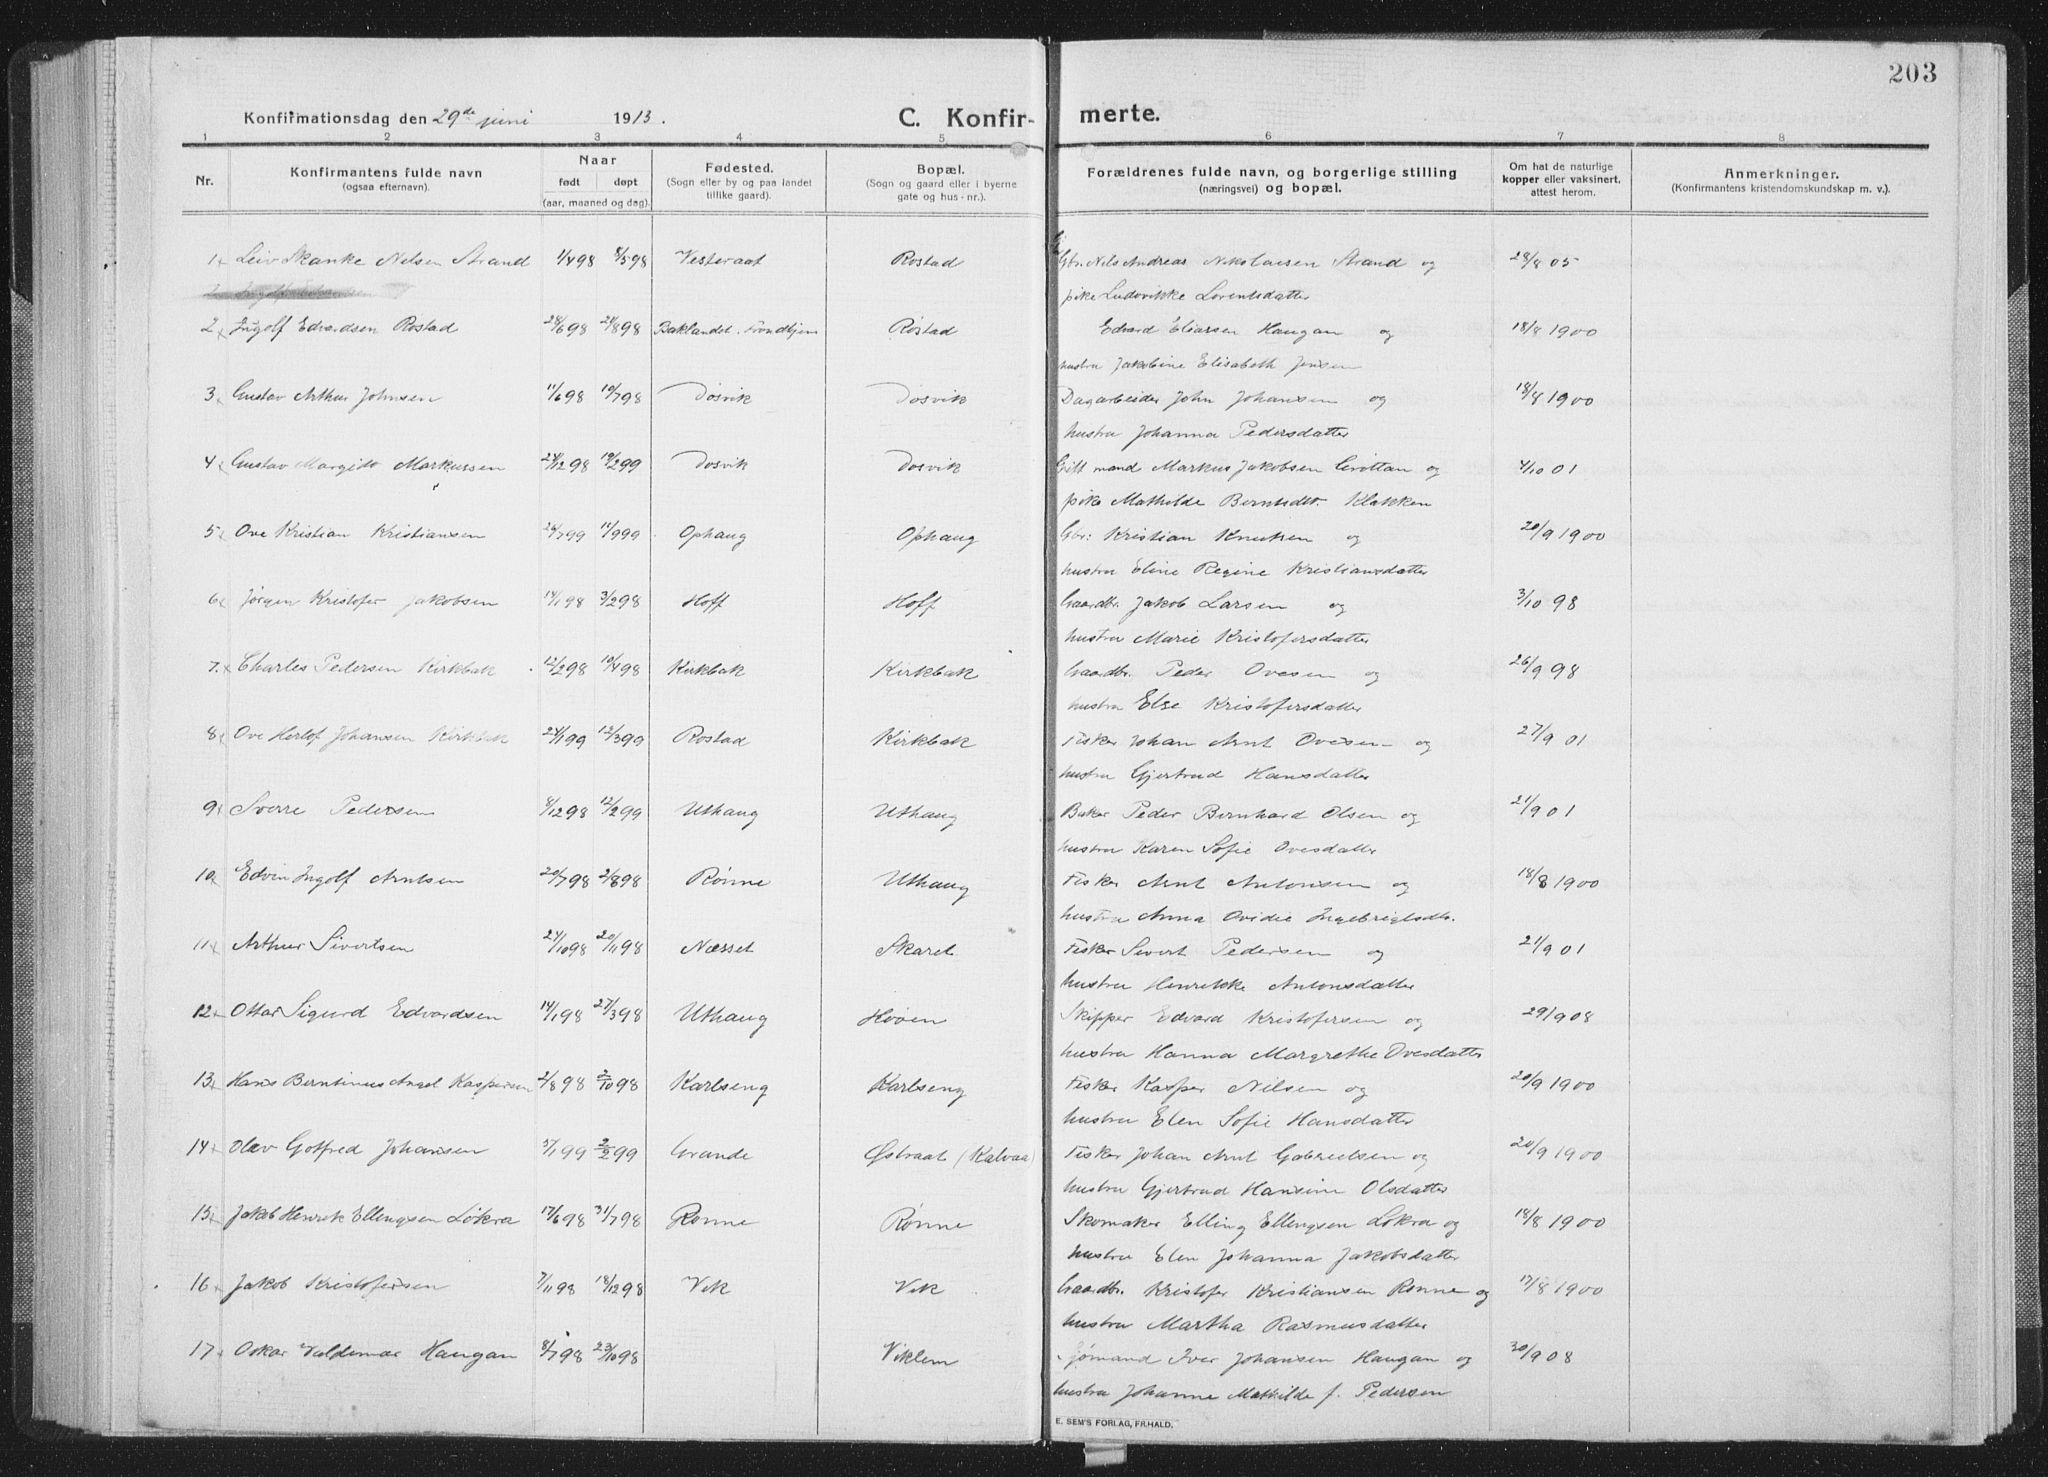 203
Konfirmationsdag den 29de juni 1913.
C. Konfirmerte.
1 2 3 4 5 6 7 8
Nr.
Konfirmantens fulde navn
(ogsaa efternavn).
Naar
født døpt
(aar, maaned og dag).
Fødested.
(Sogn eller by og paa landet
tillike gaard).
Bopæl.
(Sogn og gaard eller i byerne
gate og hus-nr.).
Forældrenes fulde navn, og borgerlige stilling
(næringsvei) og bopæl.
Om hat de naturlige
kopper eller vaksinert,
attest herom.
Anmerkninger.
(Konfirmantens kristendomskundskap m. v.).
1 Leiv Skanke Nelsen Strand 1/4 98 8/5 98 Vesteraat Rostad Gbr. Nils Andreas Nikolaisen Strand og 28/8 05
pike Ludovikke Lorentsdatter
2 Ingolf
2 Ingolf Edvardsen Rostad 28/6 98 21/8 98 Baklandet. Trondhjem Røstad Edvard Eliasen Haugan og 18/8 1900
hustru Jakobine Elisabeth Jensen
3 Gustav Arthur Johnsen 11/6 98 10/7 98 Døsvik Døsvik Dagarbeider John Johansen og 18/8 1900
hustru Johanna Pedersdatter
4 Gustav Margido Markussen 24/12 98 19/2 99 Døsvik Døsvik Gift mand Markus Jakobsen Grøttan og 4/10 01
pike Mathilde Berntsdtr. Klakken
5 Ove Kristian Kristiansen 24/7 99 11/9 99 Ophaug Ophaug Gbr: Kristian Knutsen og 20/9 1900
hustru Eline Regine Kristiansdatter
6 Jørgen Kristofer Jakobsen 14/1 98 3/2 98 Hoff Hoff Gaardbr. Jakob Larsen og 3/10 98
hustru Marie Kristofersdatter
7. Charles Pedersen Kirkbak 12/2 98 10/4 98 Kirkbak Kirkbak Gaardbr. Peder Ovesen og 26/9 98
hustru Else Kristofersdatter
8 Ove Herlof Johansen Kirkbak 24/1 99 12/3 99 Rostad Kirkbak Fisker Johan Arnt Ovesen og 27/9 01
hustru Gjertrud Hansdatter
9 Sverre Pedersen 8/12 98 12/2 99 Uthaug Uthaug Baker Peder Bernhard Olsen og 21/9 01
hustru Karen Sofie Ovesdatter
10 Edvin Ingolf Arntsen 20/7 98 2/8 98 Rønne Uthaug Fisker Arnt Antonsen og 18/8 1900
hustru Anna Ovidie Ingebrigtsdtr.
11 Arthur Sivertsen 24/10 98 20/11 98 Næsset Skaret Fisker Sivert Pedersen og 21/9 01
hustru Henrikke Antonsdatter
12 Ottar Sigurd Edvardsen 14/1 98 27/3 98 Uthaug Hoven Skipper Edvard Kristofersen og 29/9 08
hustru Hanna Margrethe Ovesdatter
13 Hans Berntinus Angel Kaspersen 2/8 98 2/10 98 Karlseng Karlseng Fisker Kasper Nilsen og 20/9 1900
hustru Elen Sofie Hansdatter
14 Olav Gotfred Johansen 5/1 99 2/2 99 Grande Østraat (Kalvaa) Fisker Johan Arnt Gabrielsen og 20/9 1900
hustru Gjertrud Hansine Olsdatter
15 Jakob Henrik Ellingsen Løkra 17/6 98 31/7 98 Rønne Rønne Skomaker Elling Ellingsen Løkra og 18/8 1900
hustru Elen Johanna Jakobsdatter
16 Jakob Kristofersen 7/11 98 18/12 98 Vik Vik Gaardbr. Kristofer Kristiansen Rønne og 17/8 1900
hustru Martha Rasmusdatter
17 Oskar Valdemar Haugan 8/7 98 23/10 98 Viklem Sjømand Iver Johansen Haugan og 30/9 08
hustru Johanne Mathilde f. Pedersen
E. SEM'S FORLAG, FR.HALD.